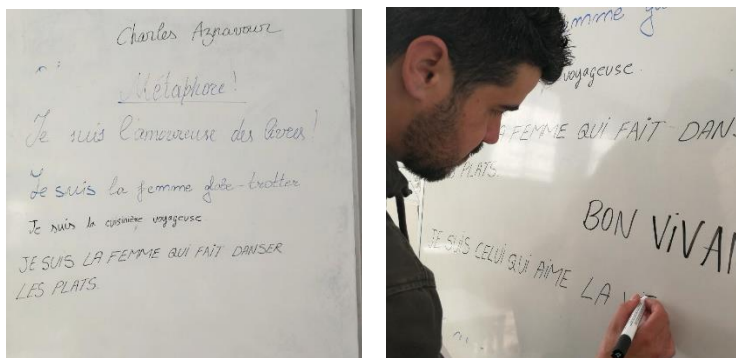 Charles Aznavour
Métaphore!
Je suis l'amoureuse des livres!
Je suis la femme globe-trotter
Je suis la cuisinière voyageuse
JE SUIS LA FEMME QUI FAIT DANSER
LES PLATS.
voyageuse
FEMME QUI FAIT DANS
PLATS.
BON ViVAN
JE SUIS CELUI QUI AIME LA